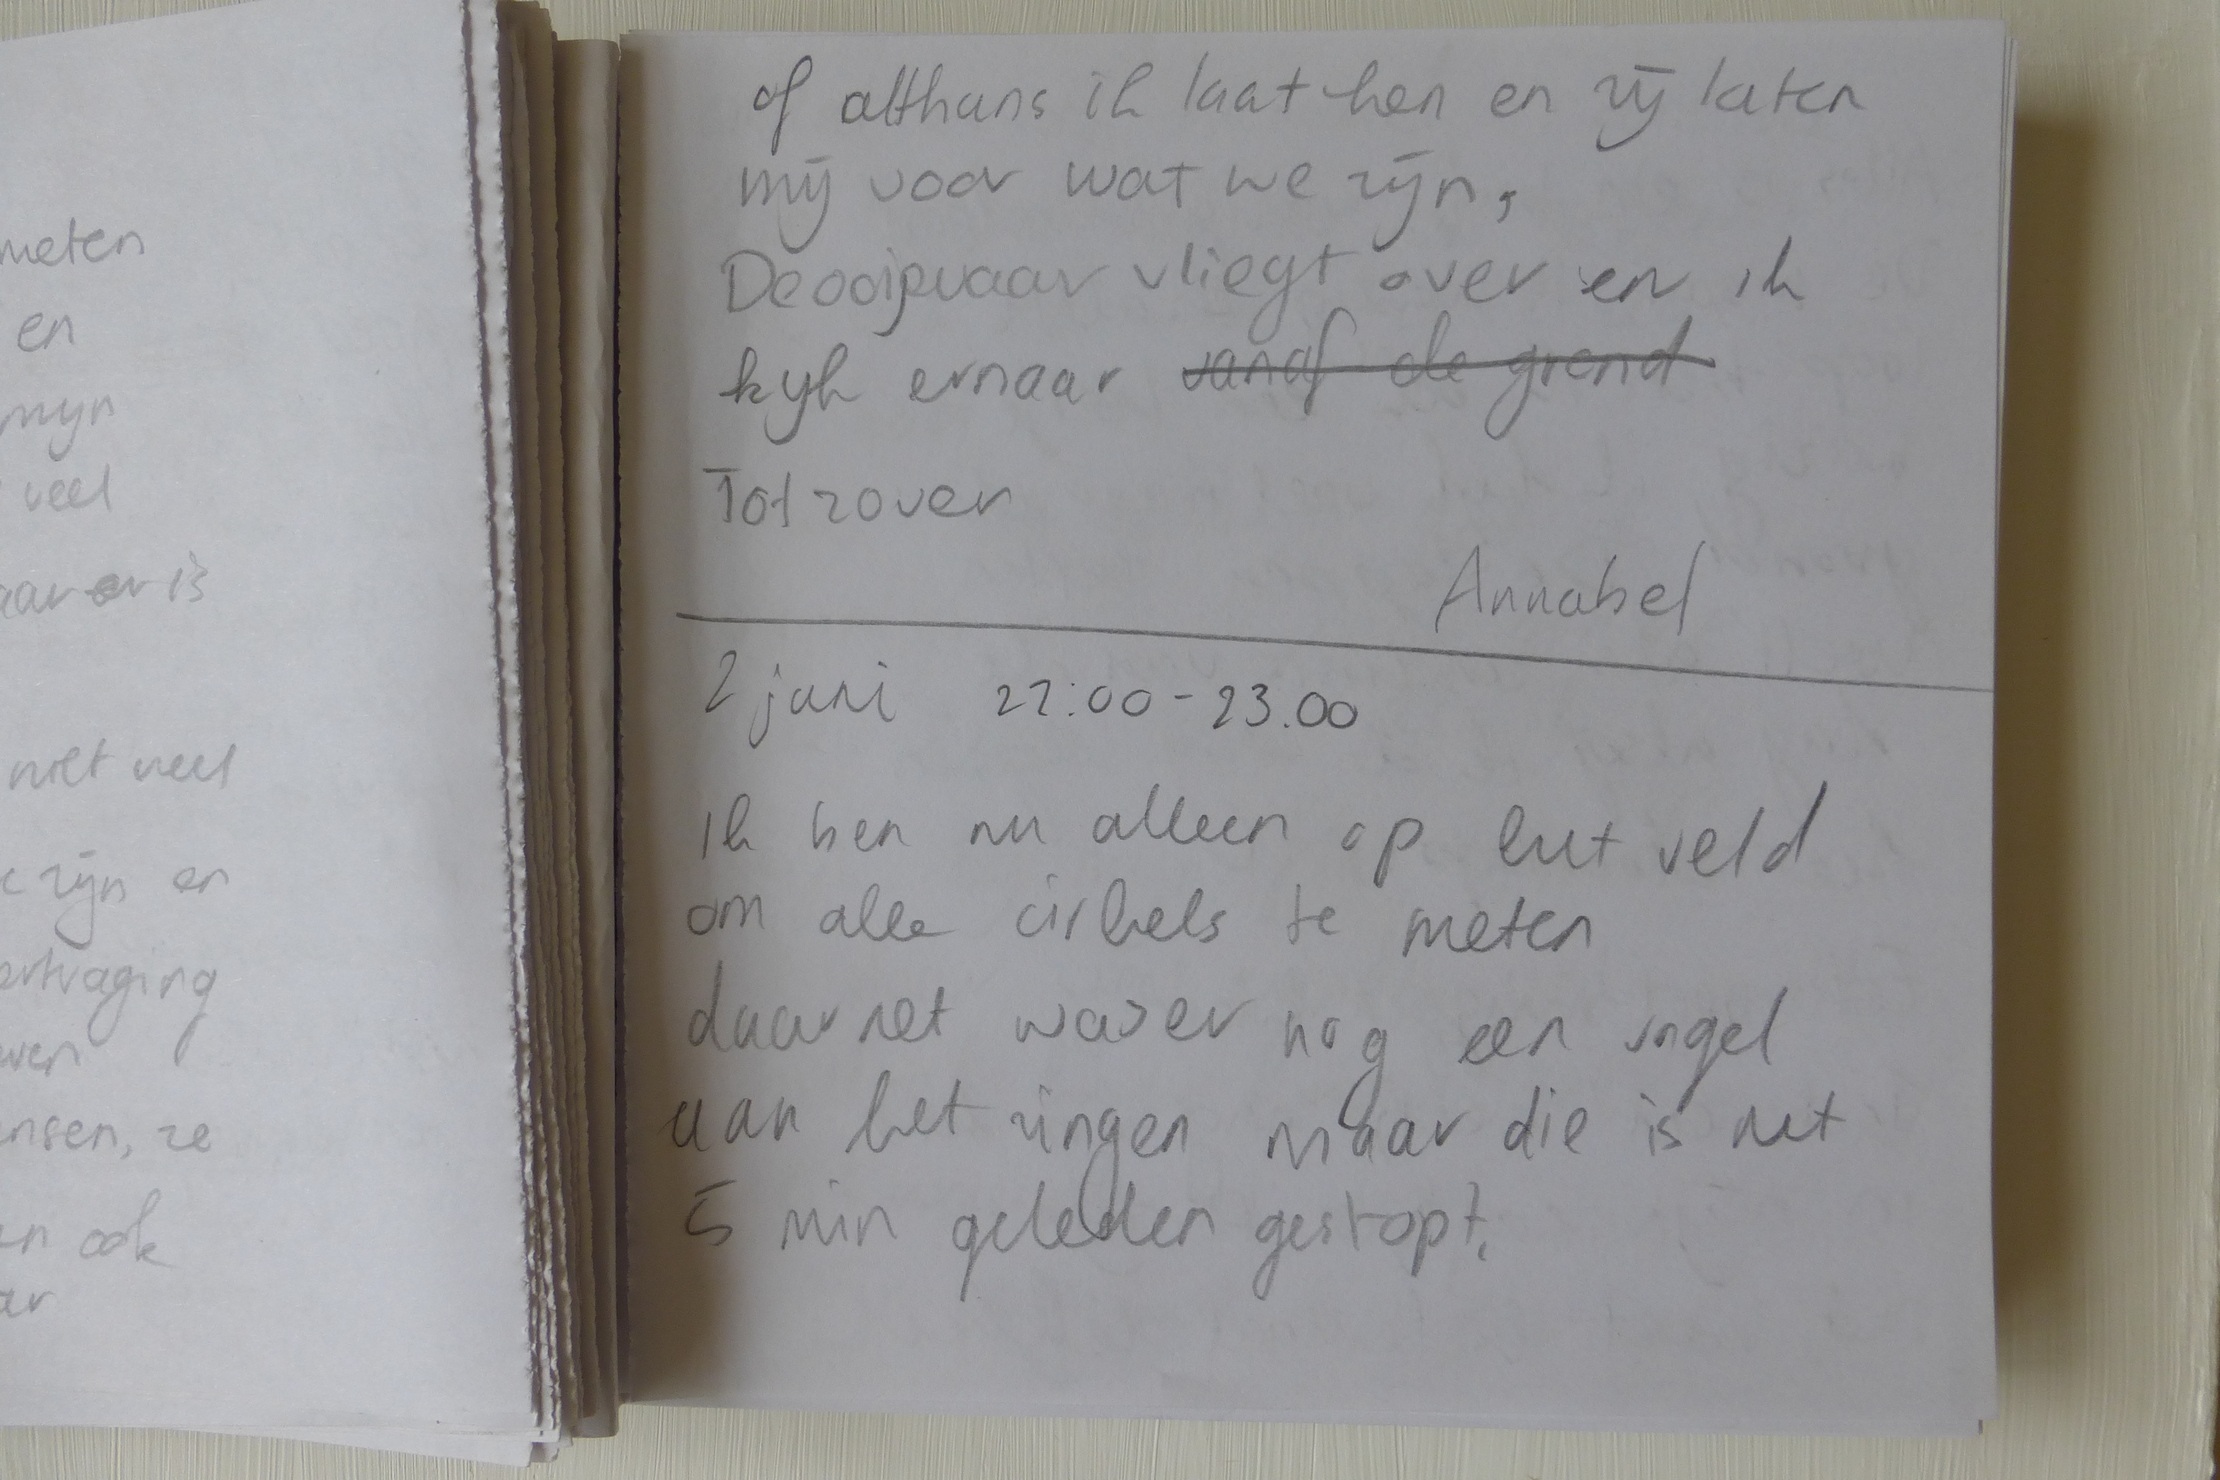 meten
en
mijn
veel
aar er is
niet veel
zijn en
ertraging
ven
ensen, ze
en ook
ar
of althans ik laat hen en zij laten
mij voor wat we zijn,
De ooijevaar vliegt over en ik
kijk ernaar vanaf de grond
Tot zover
Annabel
2 juni 22:00 - 23.00
Ik ben nu alleen op het veld
om alle cirkels te meten
daarnet was er nog een vogel
aan het zingen maar die is net
5 min geleden gestopt.